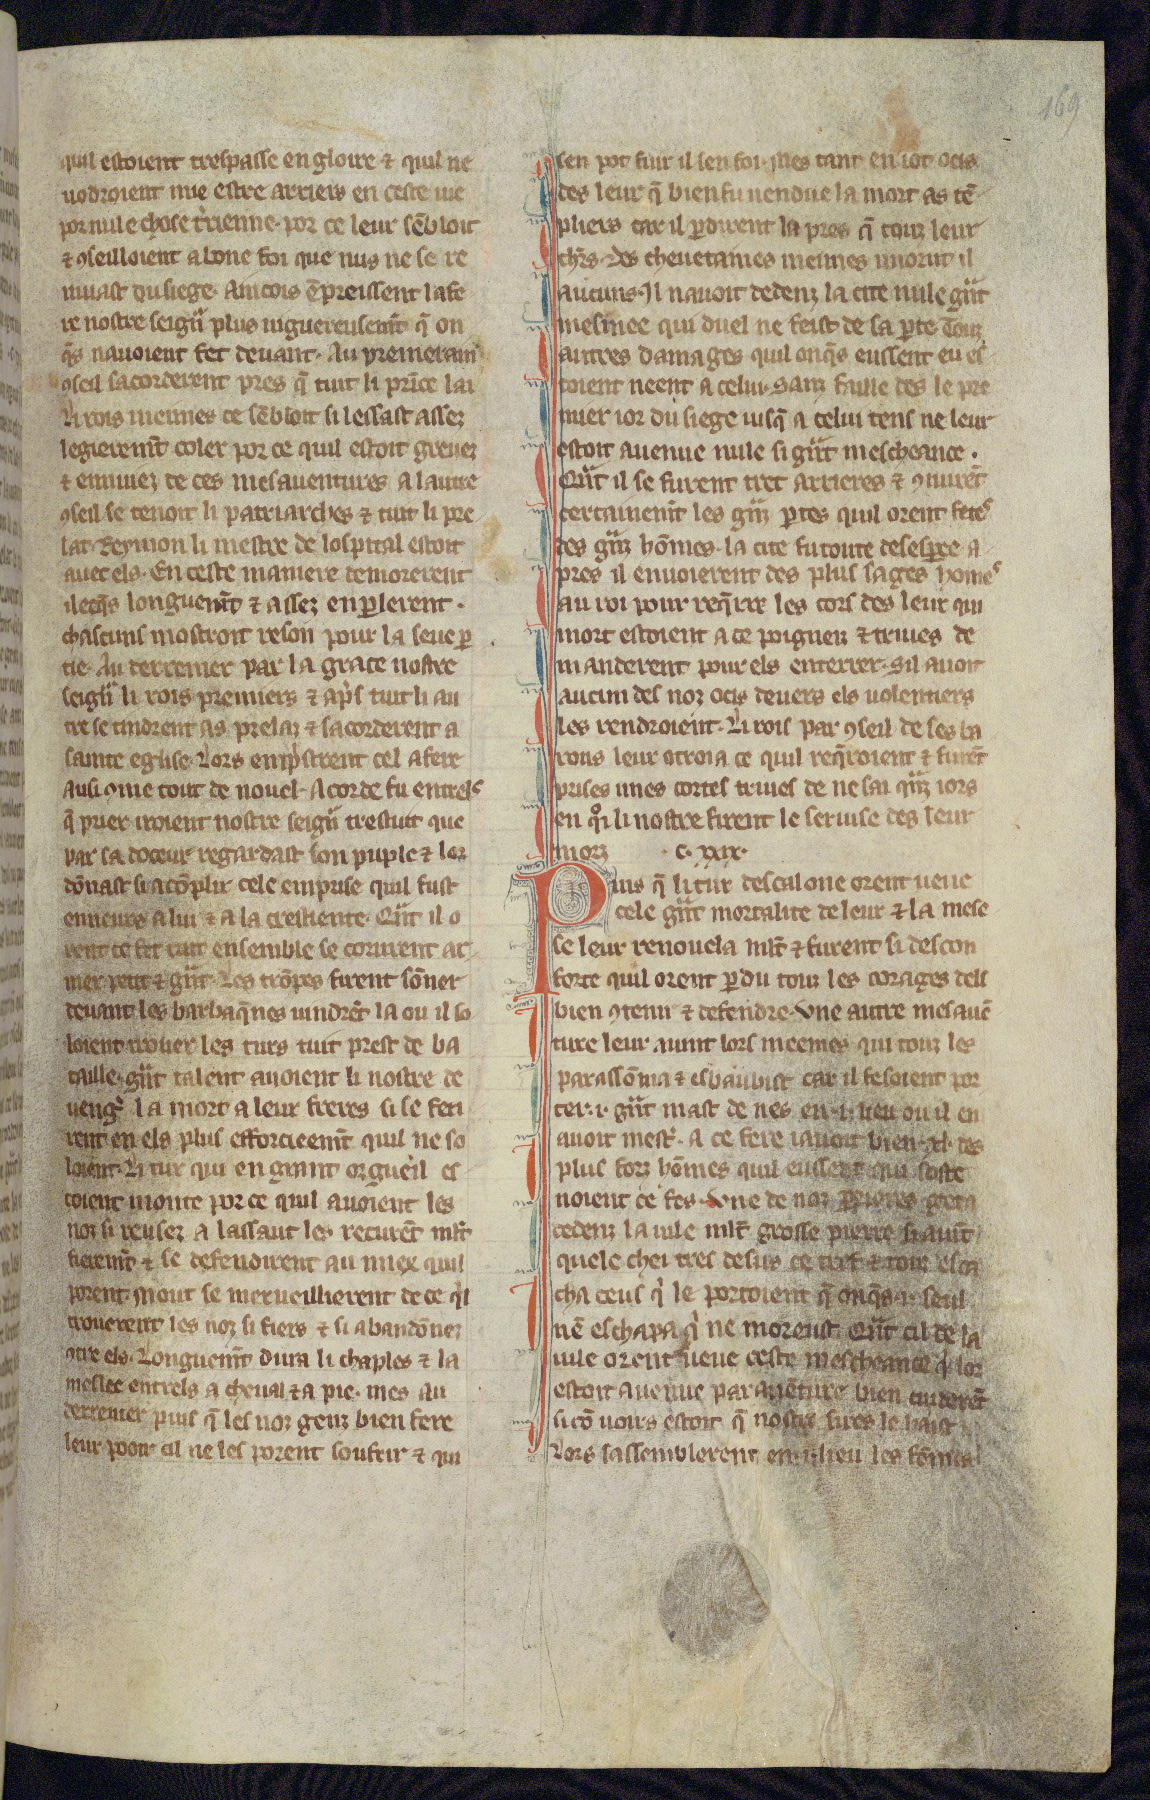 169
quil estoient trespasse en gloire ⁊ quil ne
uodroient mie estre arriers en ceste uie
por nule chose t̾rienne. por ce leur sẽbloit
⁊ ꝯseilloient a bone foi que nus ne se re
muast du siege. Ancois ẽpreissent lafe
re nostre seigñ plus uiguereusem̃t q̃ on
q̃s nauoient fet deuant. Au premerain
ꝯseil sacorderent pres q̃ tuit li prĩce lai
Li rois meimes ce sẽbloit si lessast assez
legierem̃t coler por ce quil estoit greuez
⁊ ennuiez de ces mesauentures a lautre
ꝯseil se tenoit li patriarches ⁊ tuit li pre
lat. Reymon li mestre de lospital estoit
auec els. En ceste maniere demorerent
ilecq̃s longuem̃t ⁊ assez en ꝑlerent.
chascuns mostroit reson pour la seue ꝑ
tie. Au derrenier par la grace nostre
seigñ li rois premiers ⁊ ap̃s tuit li au
tre se tindrent as prelaz ⁊ sacorderent a
sainte eglise. Lors emp̾strent cel afere
Ausi ꝯme tout de nouel. Acorde fu entrels
q̃ prier iroient nostre seigñ trestuit que
par sa doceur regardast son puple ⁊ lor
dõnast si acõplir cele emprise quil fust
enneurs a lui ⁊ a la crestiente. Qñt il o
rent ce fet tuit ensemble se corurent ar
mer petit ⁊ gñt. Les trõpes firent sõner
deuant les barbaq̃nes uindrẽt la ou il so
loient trouer les turs tuit prest de ba
taille. gñt talent auoient li nostre de
uengr̾ la mort a leur freres si se feri
rent en els plus efforcieem̃t quil ne so
loient. Li tur qui en grant orgueil es
toient monte por ce quil auoient les
noz si reusez a lassaut les recurẽt ml̃t
fierem̃t ⁊ se defendirent au miex quil
porent. Mout se merueillierent de ce q̾l
trouerent les noz si fiers ⁊ si abandõnez
ꝯtre els. Longuem̃t dura li chaples ⁊ la
meslee entrels a cheual ⁊ a pie. mes au
derrenier puis q̃ les noz genz bien fere
leur pooir cil ne les porent soufrir ⁊ qui
sen pot fuir il sen foi. Mes tant en iot ocis
des leur q̃ bien fu uendue la mort as tẽ
pliers car il ꝑdirent la pres q̃ touz leur
ch̃rs. Des cheuetaines meimes imorut il
aucuns. Il nauoit dedenz la cite nule gñt
mesniee qui duel ne feist de sa ꝑte. Touz
autres damages quil onq̃s eussent eu es
toient neent a celui. Sanz faille des le pre
mier ior du siege iusq̃ a celui tens ne leur
estoit auenue nule si gñt mescheance.
Qñt il se furent tret arrieres ⁊ ꝯnurẽt
certainem̃t les gñz ꝑtes quil orent fetes
des gñz hõmes. la cite fu toute desespree. a
pres il enuoierent des plus sages homes
au roi pour req̃rre les cors des leur qui
mort estoient a ce poigneiz ⁊ triues de
manderent pour els enterrer. sil auoit
aucun des noz ocis deuers els uolentiers
les rendroient. Li rois par ꝯseil de ses ba
rons leur otroia ce quil req̃roient ⁊ furẽt
prises unes cortes triues de ne sai q̃nz iors
en q̾i li nostre firent le seruise des leur
morz .c. xxix.
Puis q̃ li tur descalone orent ueue
cele gñt mortalite de leur ⁊ la mese
se leur renouela ml̃t ⁊ furent si descon
forte quil orent ꝑdu touz les corages dels
bien ꝯtenir ⁊ defendre. Vne autre mesauẽ
ture leur auint lors meemes qui touz les
parassõma ⁊ esbaubist car il fesoient por
ter .i. gñt mast de nes en .i. lieu ou il en
auoit mest̾. A ce fere iauoit bien .xl. des
plus forz hõmes quil eussent qui soste
noient ce fes. Vne de noz ꝑrieres geta
dedenz la uile ml̃t grosse pierre si auĩt
quele chei tres desus ce tref ⁊ touz esca
cha ceus q̾ le portoient q̃ onq̃s .i. seul
nẽ eschapa q̾ ne moreust. Qñt cil de la
uile orent ueue ceste mescheance q̾ lor
estoit auenue par auẽture bien cuiderẽt
si cõ uoirs estoit q̃ nostre sires le haist
Lors sassemblerent en .i. lieu les fẽmes